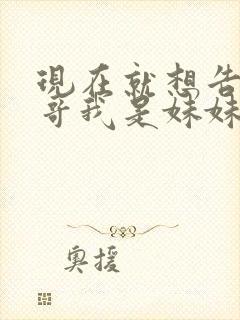 現在就想告
哥我是妹妹
奧援